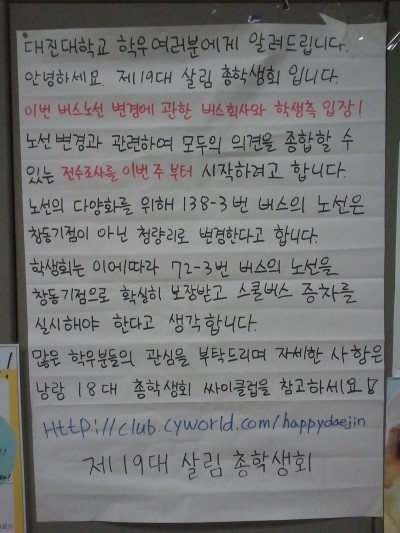 대진대학교 학우여러분에게 알려드립니다.
안녕하세요. 제19대 살림 총학생회 입니다.
이번 버스노선 변경에 관한 버스회사와 학생측 입장!
노선변경과 관련하여 모두의 의견을 종합할 수
있는 전수조사를 이번 주 부터 시작하려고 합니다.
노선의 다양화를 위해 138-3번 버스의 노선은
창동기점이 아닌 청량리로 변경한다고 합니다.
학생회는 이에따라 72-3번 버스의 노선을
창동기점으로 확실히 보장받고 스쿨버스 증차를
실시해야 한다고 생각합니다.
많은 학우분들의 관심을 부탁드리며 자세한 사항은
낭랑 18대 총학생회 싸이클럽을 참고하세요
Http://club.cyworld.com/happydaejin
제19대 살림 총학생회